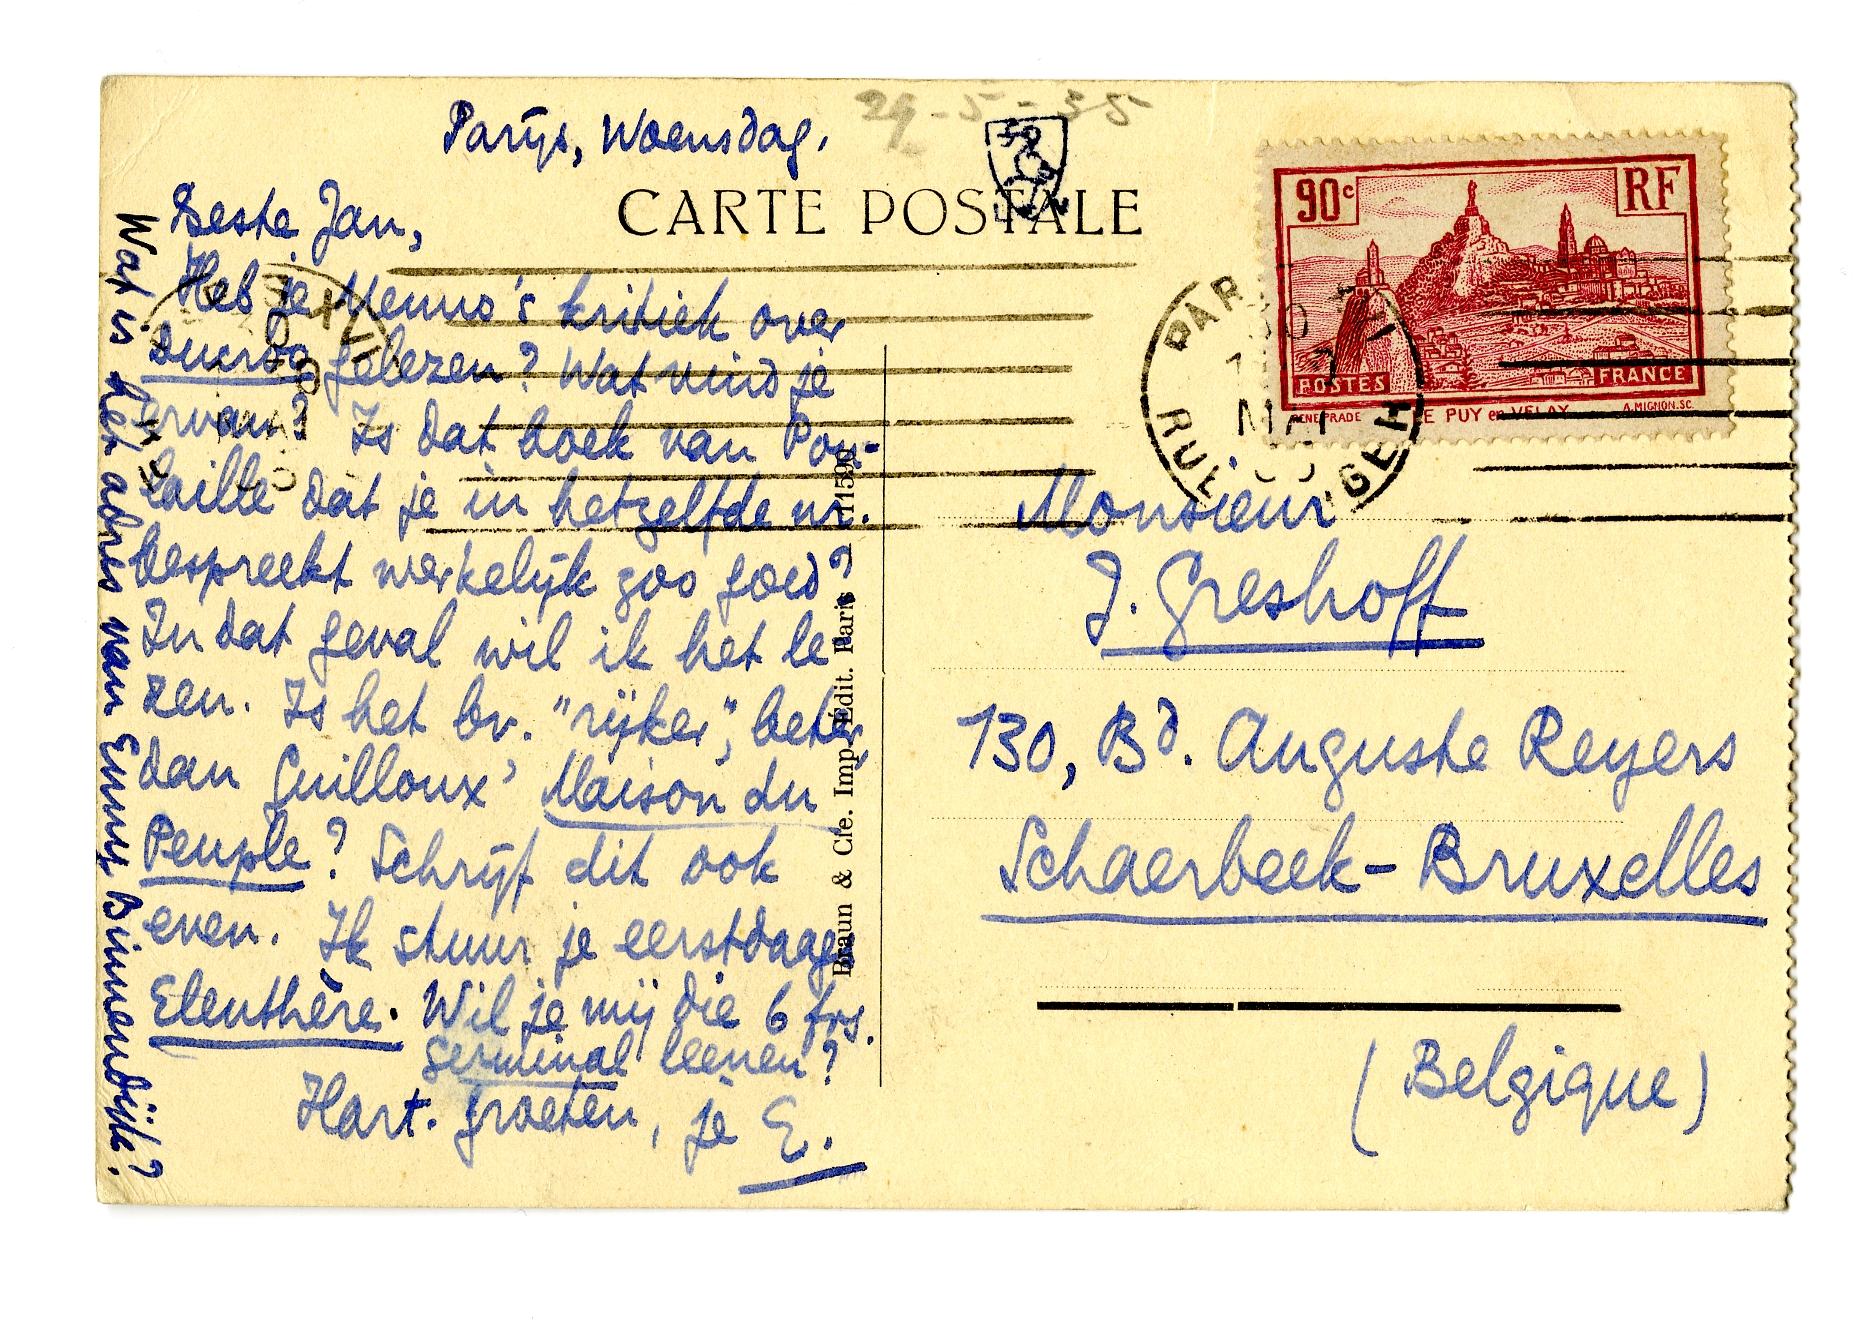 29-5-35
Parijs, Woensdag.
CARTE POSTALE
Beste Jan,
Heb je Menno's kritiek over
Ducroo gelezen? Wat vind je
ervan? Is dat boek van Pou-
laille dat je in hetzelfde nr.
bespreekt werkelijk zoo goed?
In dat geval wil ik het le-
zen. Is het bv. "rijker", beter
dan Guilloux' Maison du
Peuple? Schrijf dit ook
even. Ik stuur je eerstdaags
Eleuthère. Wil je mij die 6 frs.
Germinal leenen?
Hart. groeten, je E.
Wat is het adres van Enny Binnendijk?
Braun & Cie. Imp. Édit. Paris
11590
90c
RF
POSTES
FRANCE
RENE PRADE
LE PUY en VELAY
A.MIGNON.SC
PAR
XVI
MAI
RUE
Monsieur
J. Greshoff
130, Bd. Auguste Reyers
Schaerbeek-Bruxelles
(Belgique)